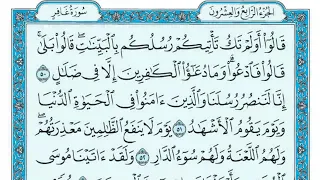 سُورَةُ غَافِرٍ الجُزْءُ الرَّابِعُ وَالعِشْرُونَ
قَالُوٓا۟ أَوَلَمْ تَكُ تَأْتِيكُمْ رُسُلُكُم بِٱلْبَيِّنَٰتِ ۖ قَالُوا۟ بَلَىٰ ۚ
قَالُوا۟ فَٱدْعُوا۟ ۗ وَمَا دُعَٰٓؤُا۟ ٱلْكَٰفِرِينَ إِلَّا فِى ضَلَٰلٍ ٥٠
إِنَّا لَنَنصُرُ رُسُلَنَا وَٱلَّذِينَ ءَامَنُوا۟ فِى ٱلْحَيَوٰةِ ٱلدُّنْيَا
وَيَوْمَ يَقُومُ ٱلْأَشْهَٰدُ ٥١ يَوْمَ لَا يَنفَعُ ٱلظَّٰلِمِينَ مَعْذِرَتُهُمْ ۖ
وَلَهُمُ ٱللَّعْنَةُ وَلَهُمْ سُوٓءُ ٱلدَّارِ ٥٢ وَلَقَدْ ءَاتَيْنَا مُوسَى